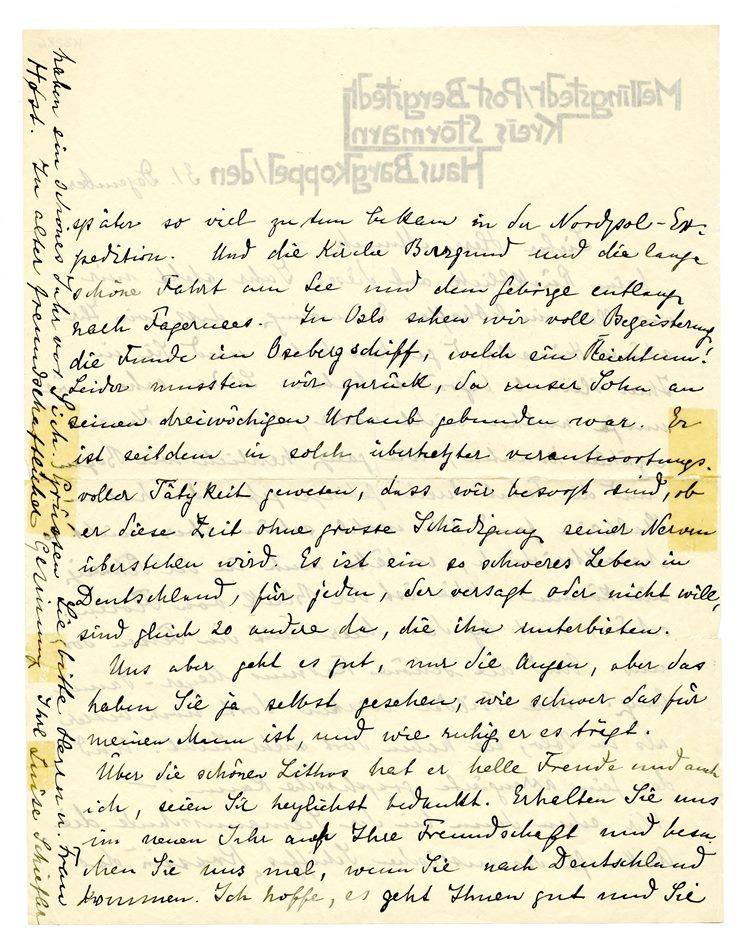 später so viel zu tun bekam in der Nordpol-Ex-
pedition. Und die Kirche Borgund und die lange
schöne Fahrt am See und dem Gebirge entlang
nach Fagernees. In Oslo sahen wir voll Begeisterung
die Funde im Osebergschiff, welch ein Reichtum!
Leider mussten wir zurück, da unser Sohn an
seinen dreiwöchigen Urlaub gebunden war. Er
ist seitdem in solch überhetzter verantwortungs-
voller Tätigkeit gewesen, dass wir besorgt sind, ob
er diese Zeit ohne grosse Schädigung seiner Nerven
überstehen wird. Es ist ein so schweres Leben in
Deutschland, für jeden, der versagt oder nicht will,
sind gleich 20 andere da, die ihn unterbieten.
Uns aber geht es gut, nur die Augen, aber das
haben Sie ja selbst gesehen, wie schwer das für
meinen Mann ist, und wie ruhig er es trägt.
Über die schönen Lithos hat er helle Freude und auch
ich, seien Sie herzlichst bedankt. Erhalten Sie uns
im neuen Jahr auch Ihre Freundschaft und besu-
chen Sie uns mal, wenn Sie nach Deutschland
kommen. Ich hoffe, es geht Ihnen gut und Sie
haben ein schönes Jahr vor Sich. Grüssen Sie bitte Herrn u. Frau
Høst. In alter freundschaftlicher Gesinnung Ihre Luise Schiefler
Mellingstedt/Post Bergstedt
Kreis Stormarn
Haus Bargkoppel/den 31. Dezember